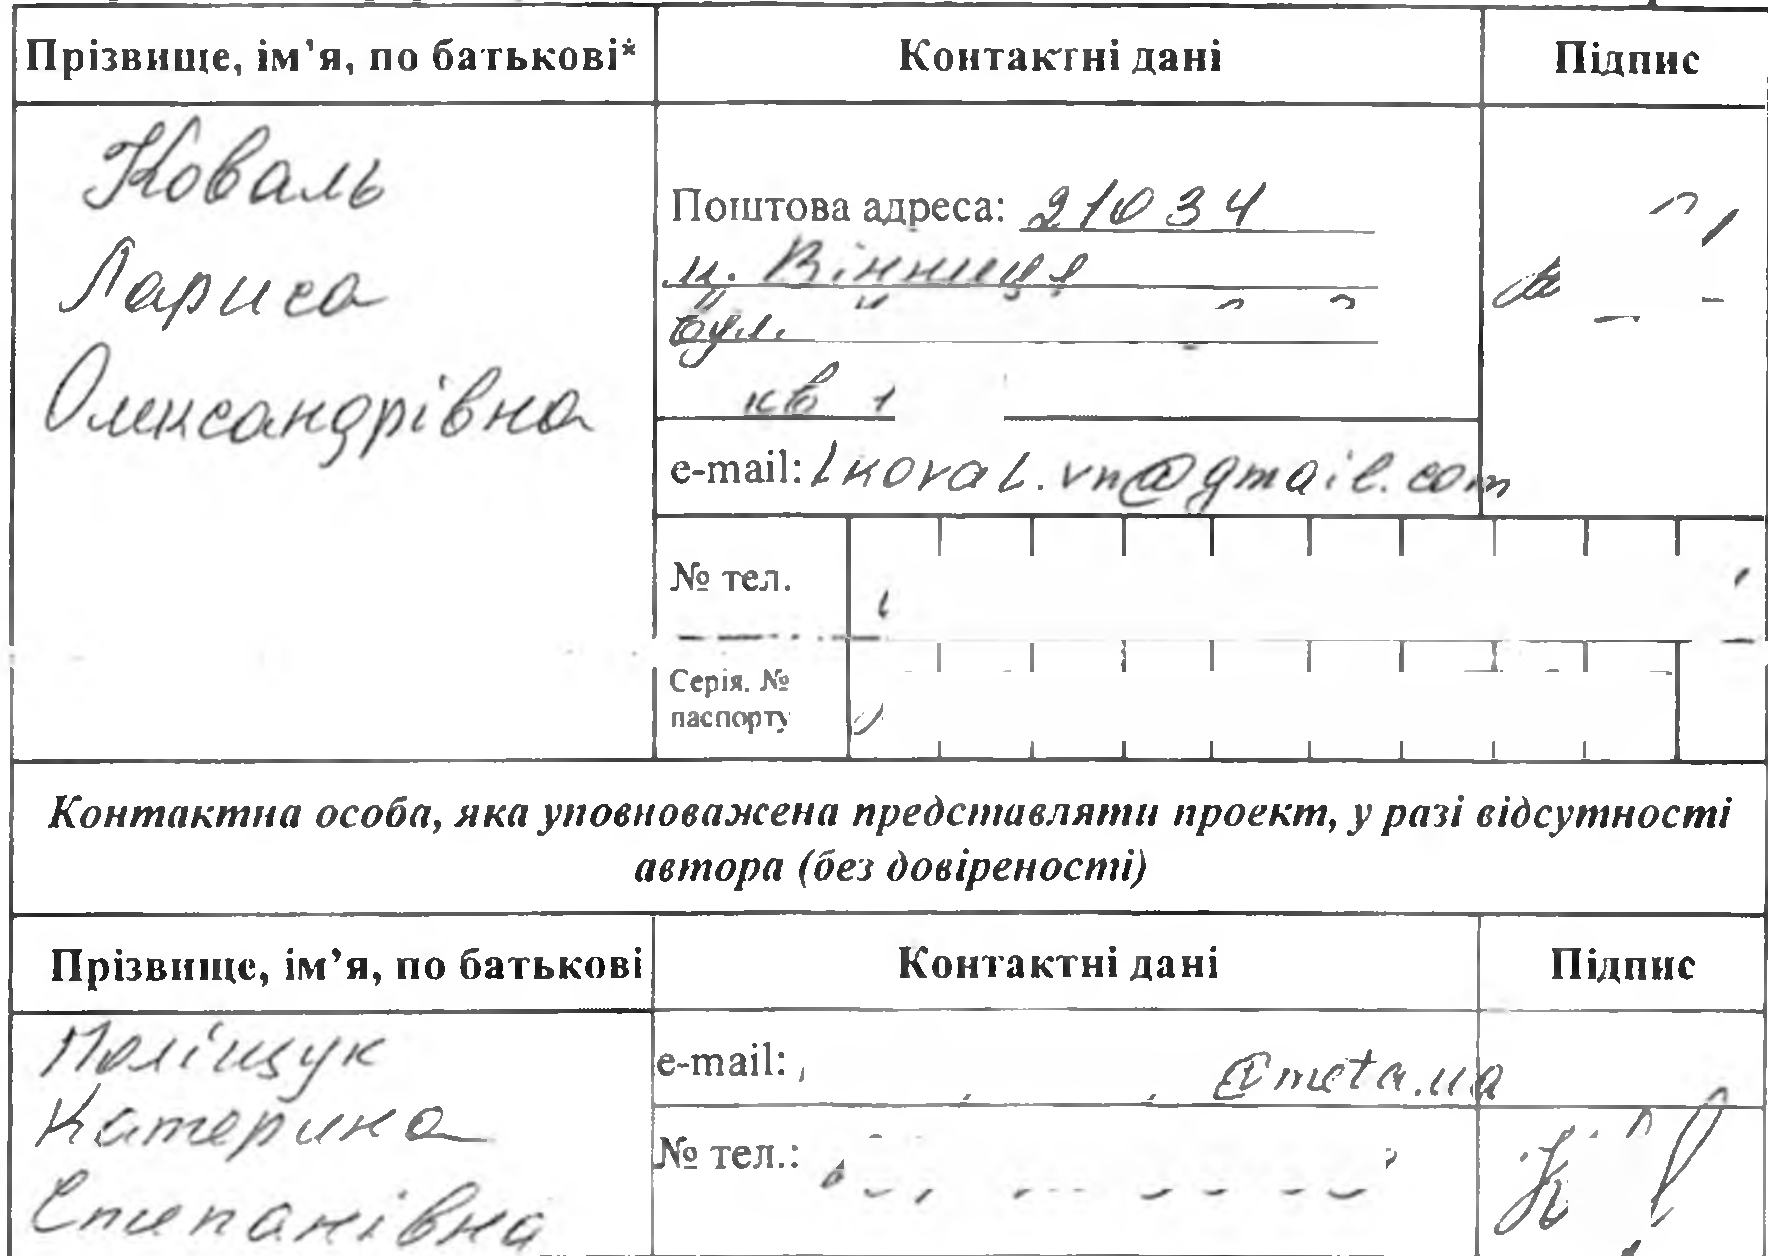 Прізвище, ім’я, по батькові* Контактні дані Підпис
Коваль
Лариса
Олександрівна
Поштова адреса: 21034
м. Вінниця
вул.
кв 1
e-mail: lkoval.vn@gmail.com
№ тел.
Серія. №
паспорту
Контактна особа, яка уповноважена представляти проект, у разі відсутності
автора (без довіреності)
Прізвище, ім’я, по батькові Контактні дані Підпис
Поліщук
Катерина
Степанівна
e-mail: @meta.ua
№ тел.: